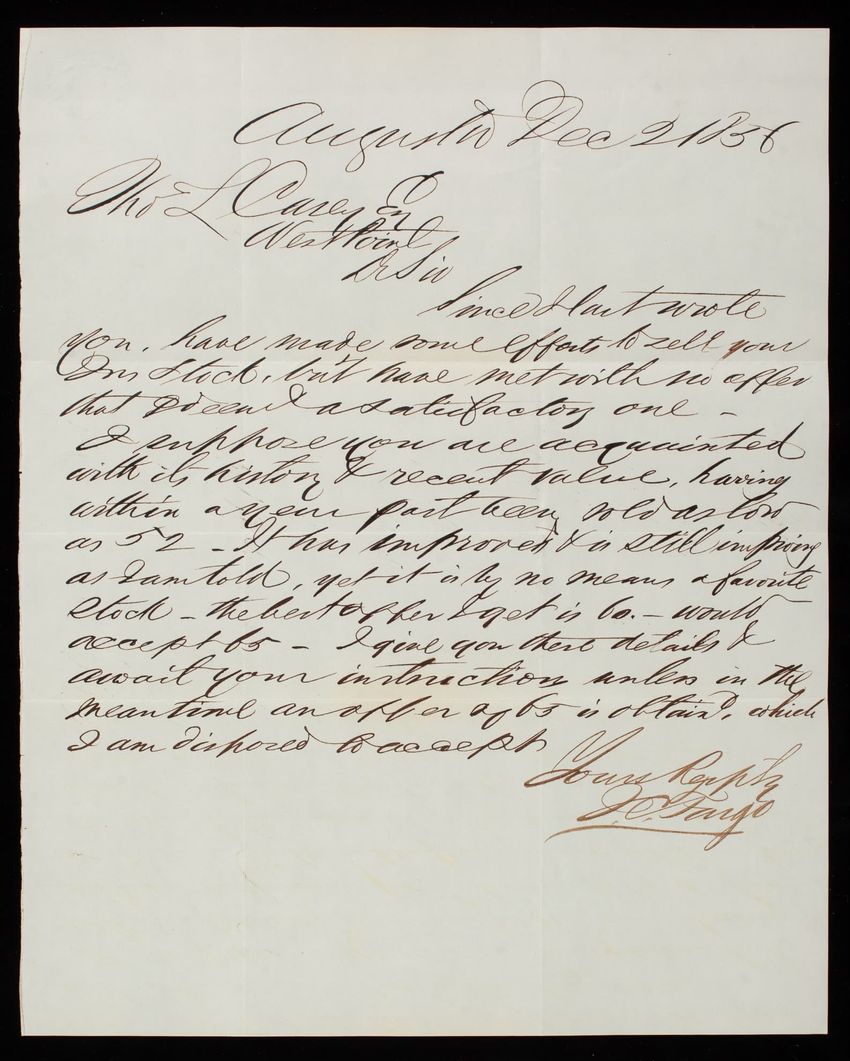 Augusta Dec 2 1856
Tho L Casey Eq
West Point
Dr Sir
Since I last wrote
you, have made some efforts to sell your
Ins Stock, but have met with no offer
that I deemd a satisfactory one -
I suppose you are acquainted
with its history & recent value, having
within a year past been sold as low
as 52 - It has improved & is still improving
as I am told, yet it is by no means a favorite
Stock - the best offer I get is 60. - would
accept 65 - I give you these details &
await your instructions unless in the
meantime an offer of 65 is obtaind, which
I am disposed to accept
Yours Respy
Fargo